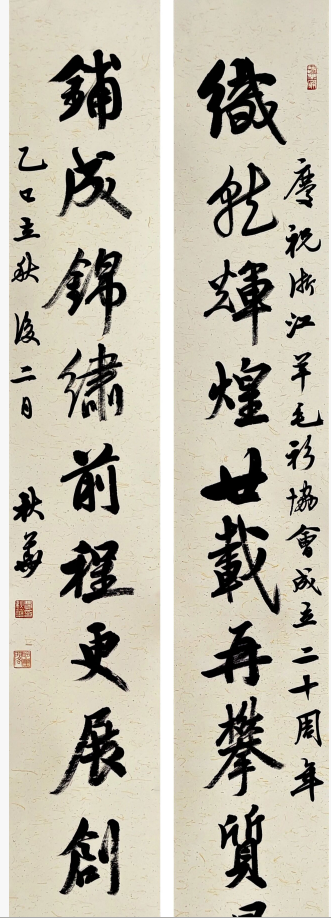 慶祝浙江羊毛衫協會成立二十周年
織就輝煌廿載再攀質
鋪成錦繡前程更展創
乙巳立秋後二日 秋華